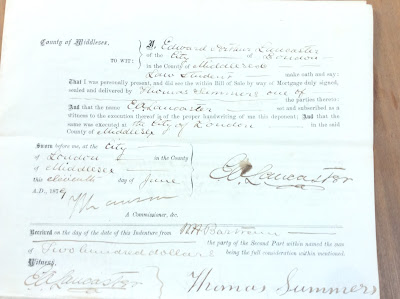 County of Middlesex,
TO WIT:
I, Edward Arthur Lancaster
of the City of London
in the County of Middlesex
Law Student make oath and say:
That I was personally present, and did see the within Bill of Sale by way of Mortgage duly signed,
sealed and delivered by Thomas Summers one of
the parties thereto:
And that the name EA Lancaster set and subscribed as a
witness to the execution thereof is of the proper handwriting of me this deponent; And that the
same was executed at the City of London in the said
County of Middlesex
Sworn before me, at the City
of London in the County
of Middlesex
this eleventh day of June
A.D., 1879
EA Lancaster
A Commissioner, &c.
Received on the day of the date of this Indenture from
the party of the Second Part within named the sum
of Two hundred dollars being the full consideration within mentioned.
Witness,
EA Lancaster
Thomas Summers